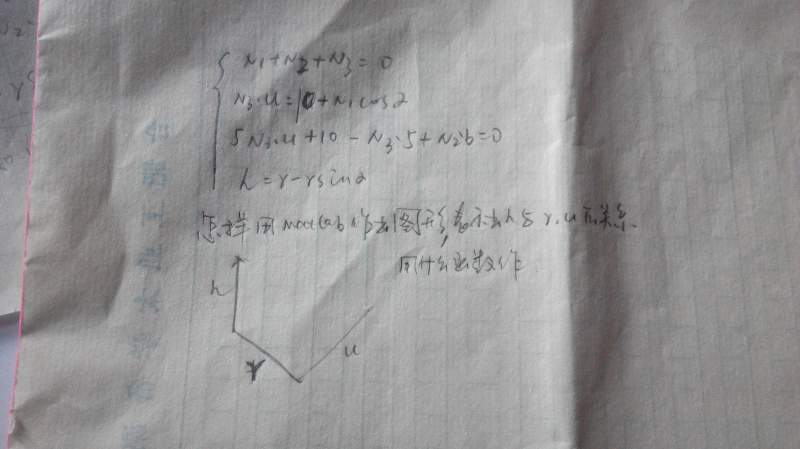 N1+N2+N3=0
N3·u=10+N1cosα
5N3·u+10-N3·5+N2·b=0
h=r-rsinα
怎样用matlab作出图形,表示出h与r,u的关系.
用什么函数作
h
r
u